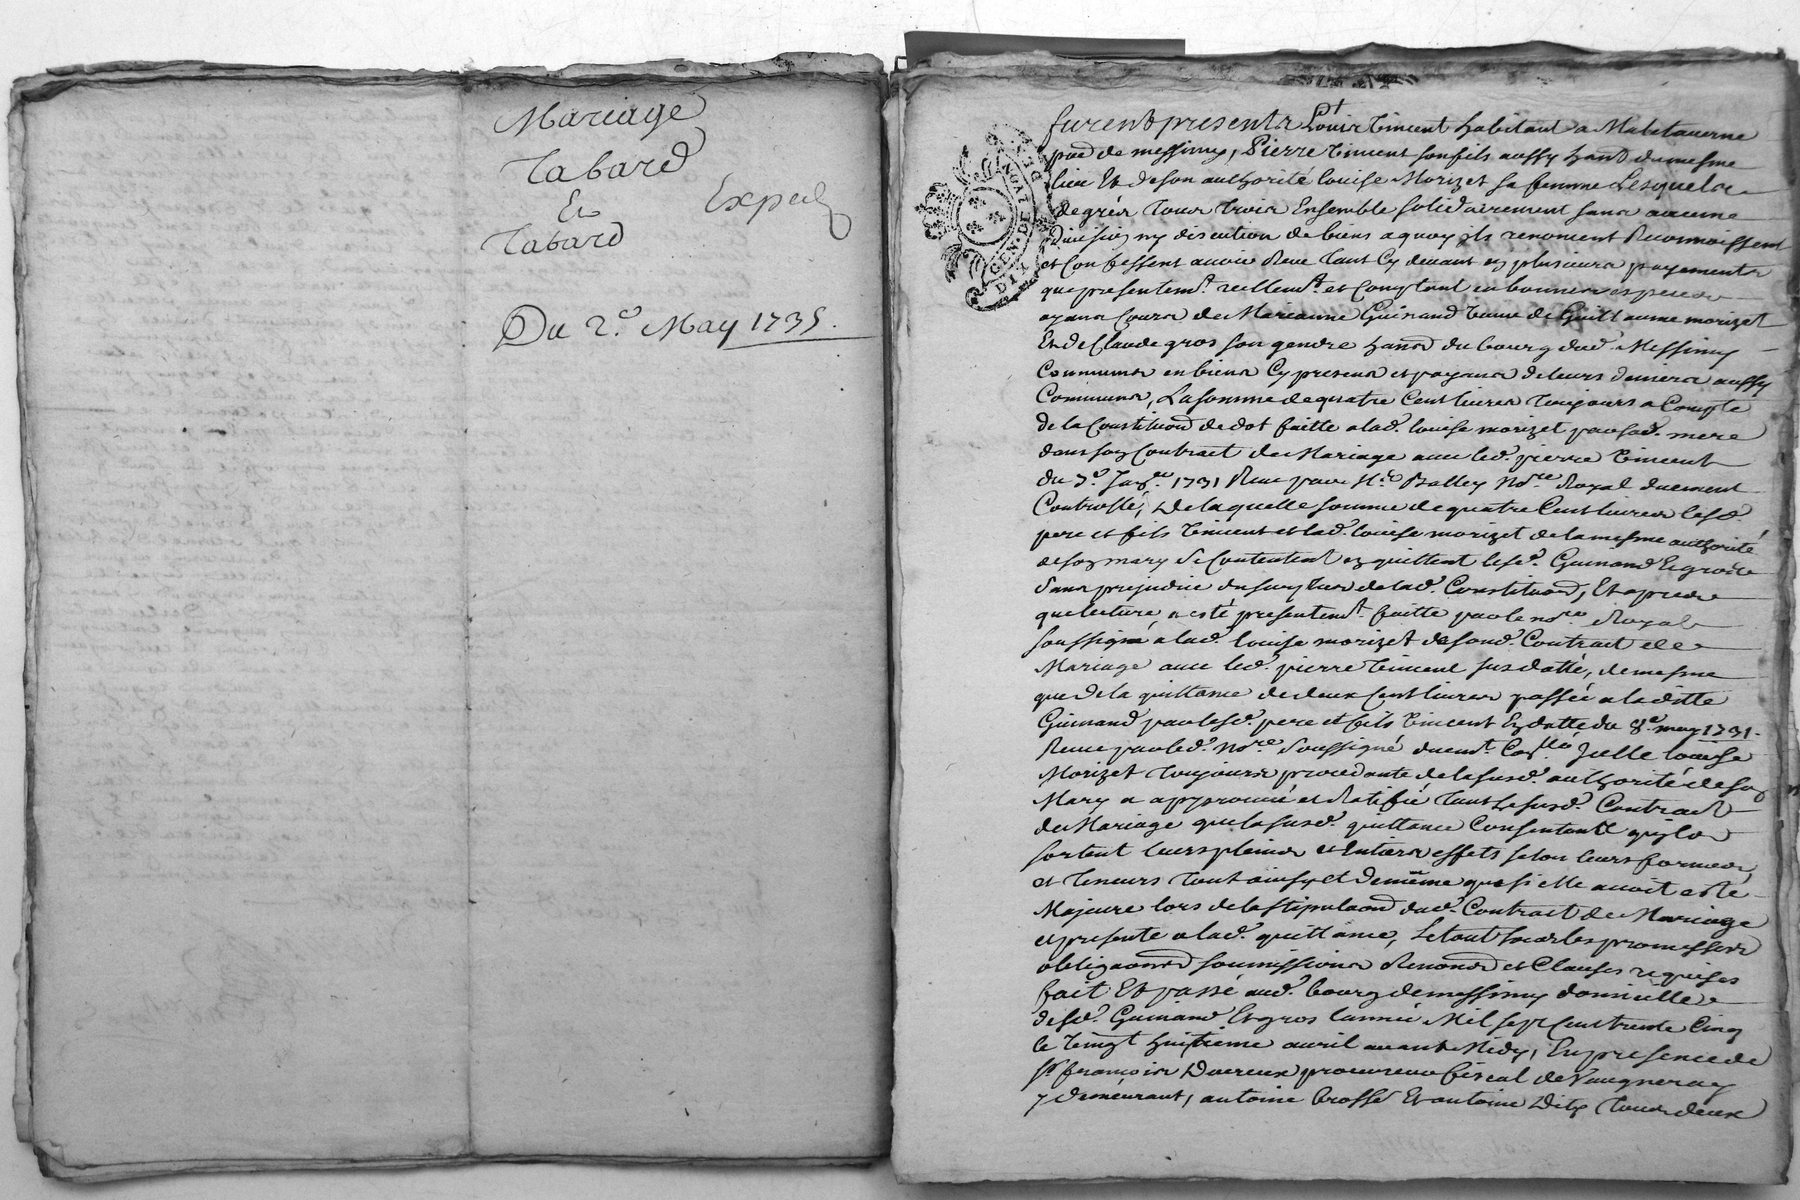 Mariage
Tabard
Et
Tabard
Exped
Du 2.e May 1735.
GEN. DE LYON
furent presents Louis Vincent habitant a Malataverne
parr. de messimy, Pierre Vincent son fils aussy habt. du mesme
lieu Et de son authorité louise Morizet sa femme Lesquels
de grés tous trois Ensemble solidairement sans aucune
Division ny discution de biens a quoy ils renoncent Reconnoissent
et Confessent avoir Reeu tant Cy devant en plusieurs payements
que presentemt. reellemt. et Comptant en bonnes especes
ayans Cours de Marianne Guinand veuve de Guillaume morizet
Et de Claude gros son gendre habts. du bourg dud. Messimy
Communs en biens Cy presens et payans de leurs deniers aussy
Communs, La somme de quatre Cent livres toujours a Compte
de la Constituon. de dot faitte a lad. louise morizet par sad. mere
dans son Contract de Mariage avec led. pierre Vincent
du Janer. 1731 Receu par Me. Balley nore. Royal duement
Controllé, De laquelle somme de quatre Cent livres lesd.
pere et fils Vincent et lad. louise morizet de la mesme authorité
de son mary Se Contentent en quittent lesd. Guinand Et gros
Sans prejudice du surplus de lad. Constituon, Et apres
que lecture a esté presentemt. faitte par le nore. Royal
soussigné a lad. louise morizet de sond. Contract de
Mariage avec led. pierre Vincent sus datté, de mesme
que de la quittance de deux Cent livres passée a laditte
Guinand par lesd. pere et fils Vincent En datte du 8.e may 1731.
Receue par led. nore. Soussigné duemt. Conllé. Icelle louise
Morizet toujours procedante de la susd. authorité de son
Mary a approuvé et Ratifié tant Le susd. Contract
de Mariage que la susd. quittance Consentant qu'ils
sortent leurs pleins et Entiers effets selon leurs formes
et teneurs tout ainsy et de même que si elle avoit esté
Majeure lors de la stipulaon. dud. Contract de Mariage
et presente a lad. quittance, Le tout sous les promesses
obligaons. soumissions Renons. et Clauses requises
fait Et passé aud. bourg de messimy domicille
desd. Guinand Et gros l'année Mil sept Cent trente Cinq
le Vingt huitième avril avant Midy, En presence de
Sr. francois Duereux procureur fiscal de Vaugneray
y demeurant, antoine brossé Et antoine Tous deux